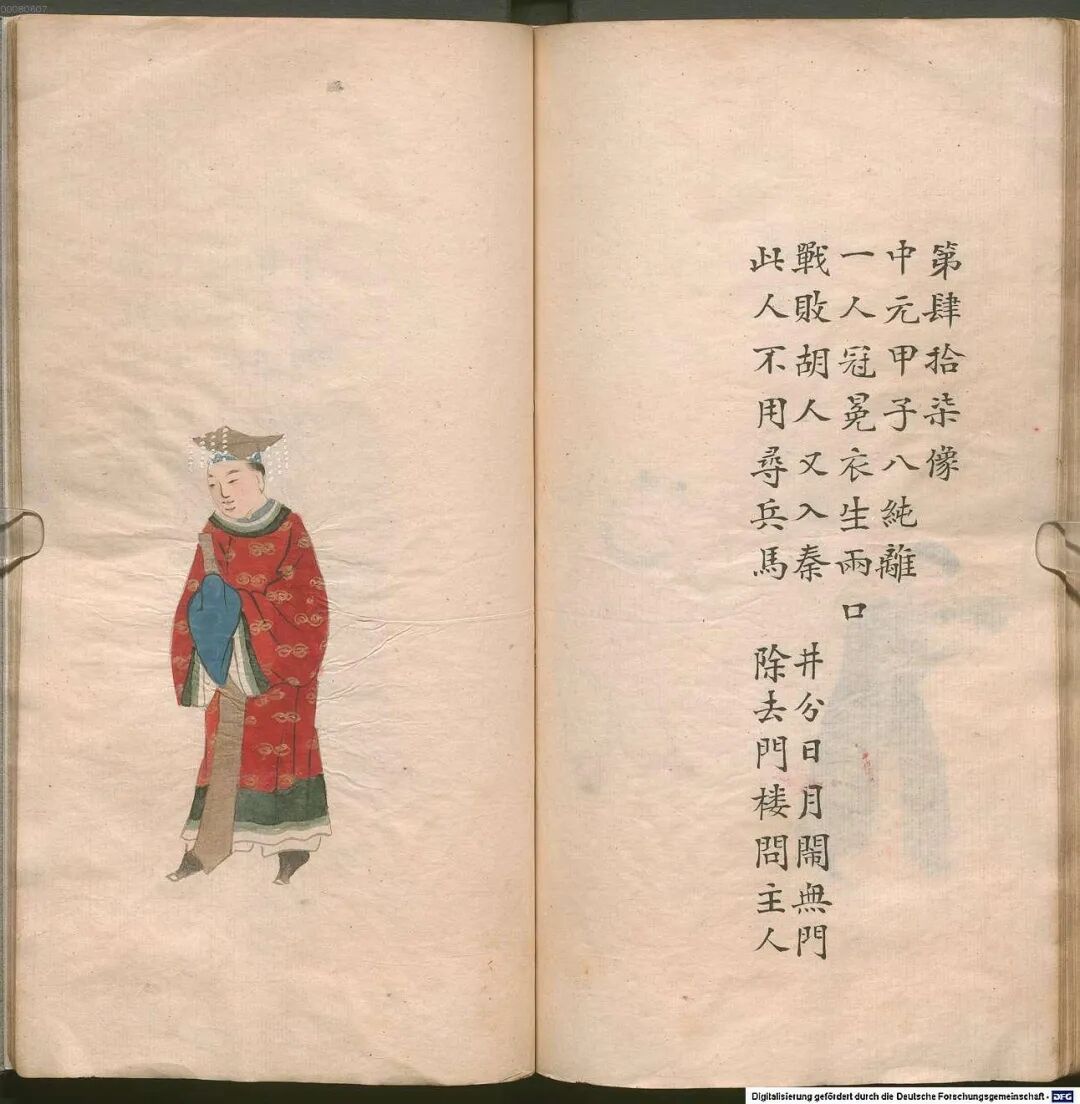 第肆拾柒像
中元甲子八純離
一人冠冕衣生兩口
戰敗胡人又入秦 井分日月鬧無門
此人不用尋兵馬 除去門楼問主人
00080607
Digitalisierung gefördert durch die Deutsche Forschungsgemeinschaft - DFG